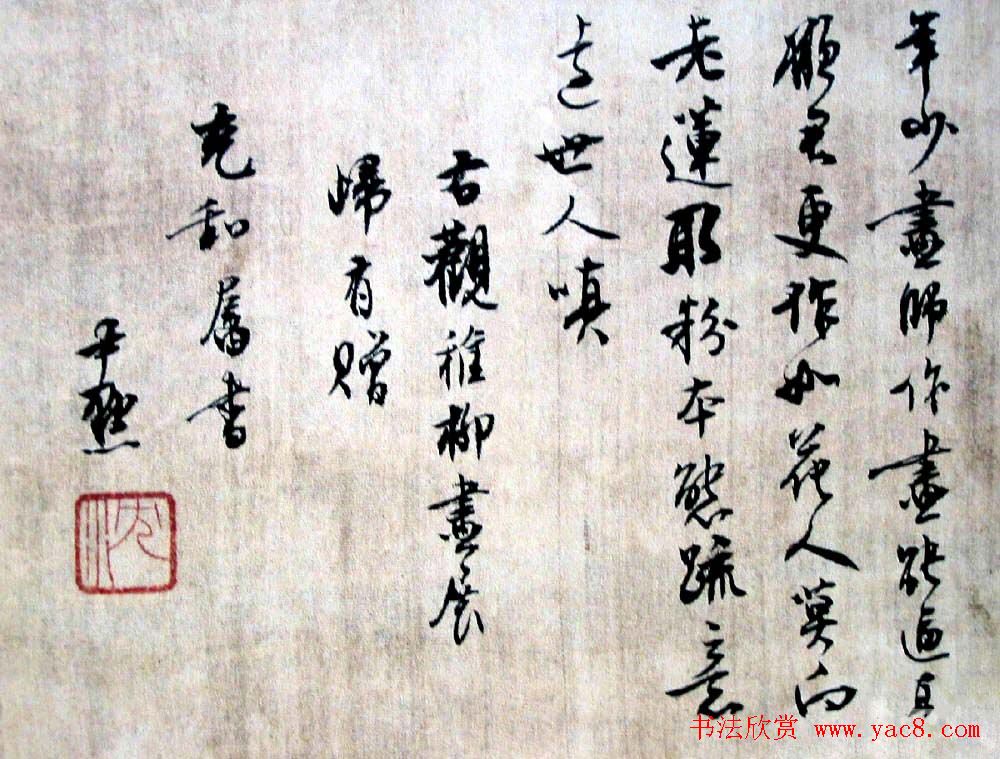 年少畫師作畫能逼真
願君更作如花人莫向
老蓮取粉本態疏意
遠世人嗔
右觀稚柳畫展
歸有贈
充和屬書
尹默
沈
书法欣赏 www.yac8.com